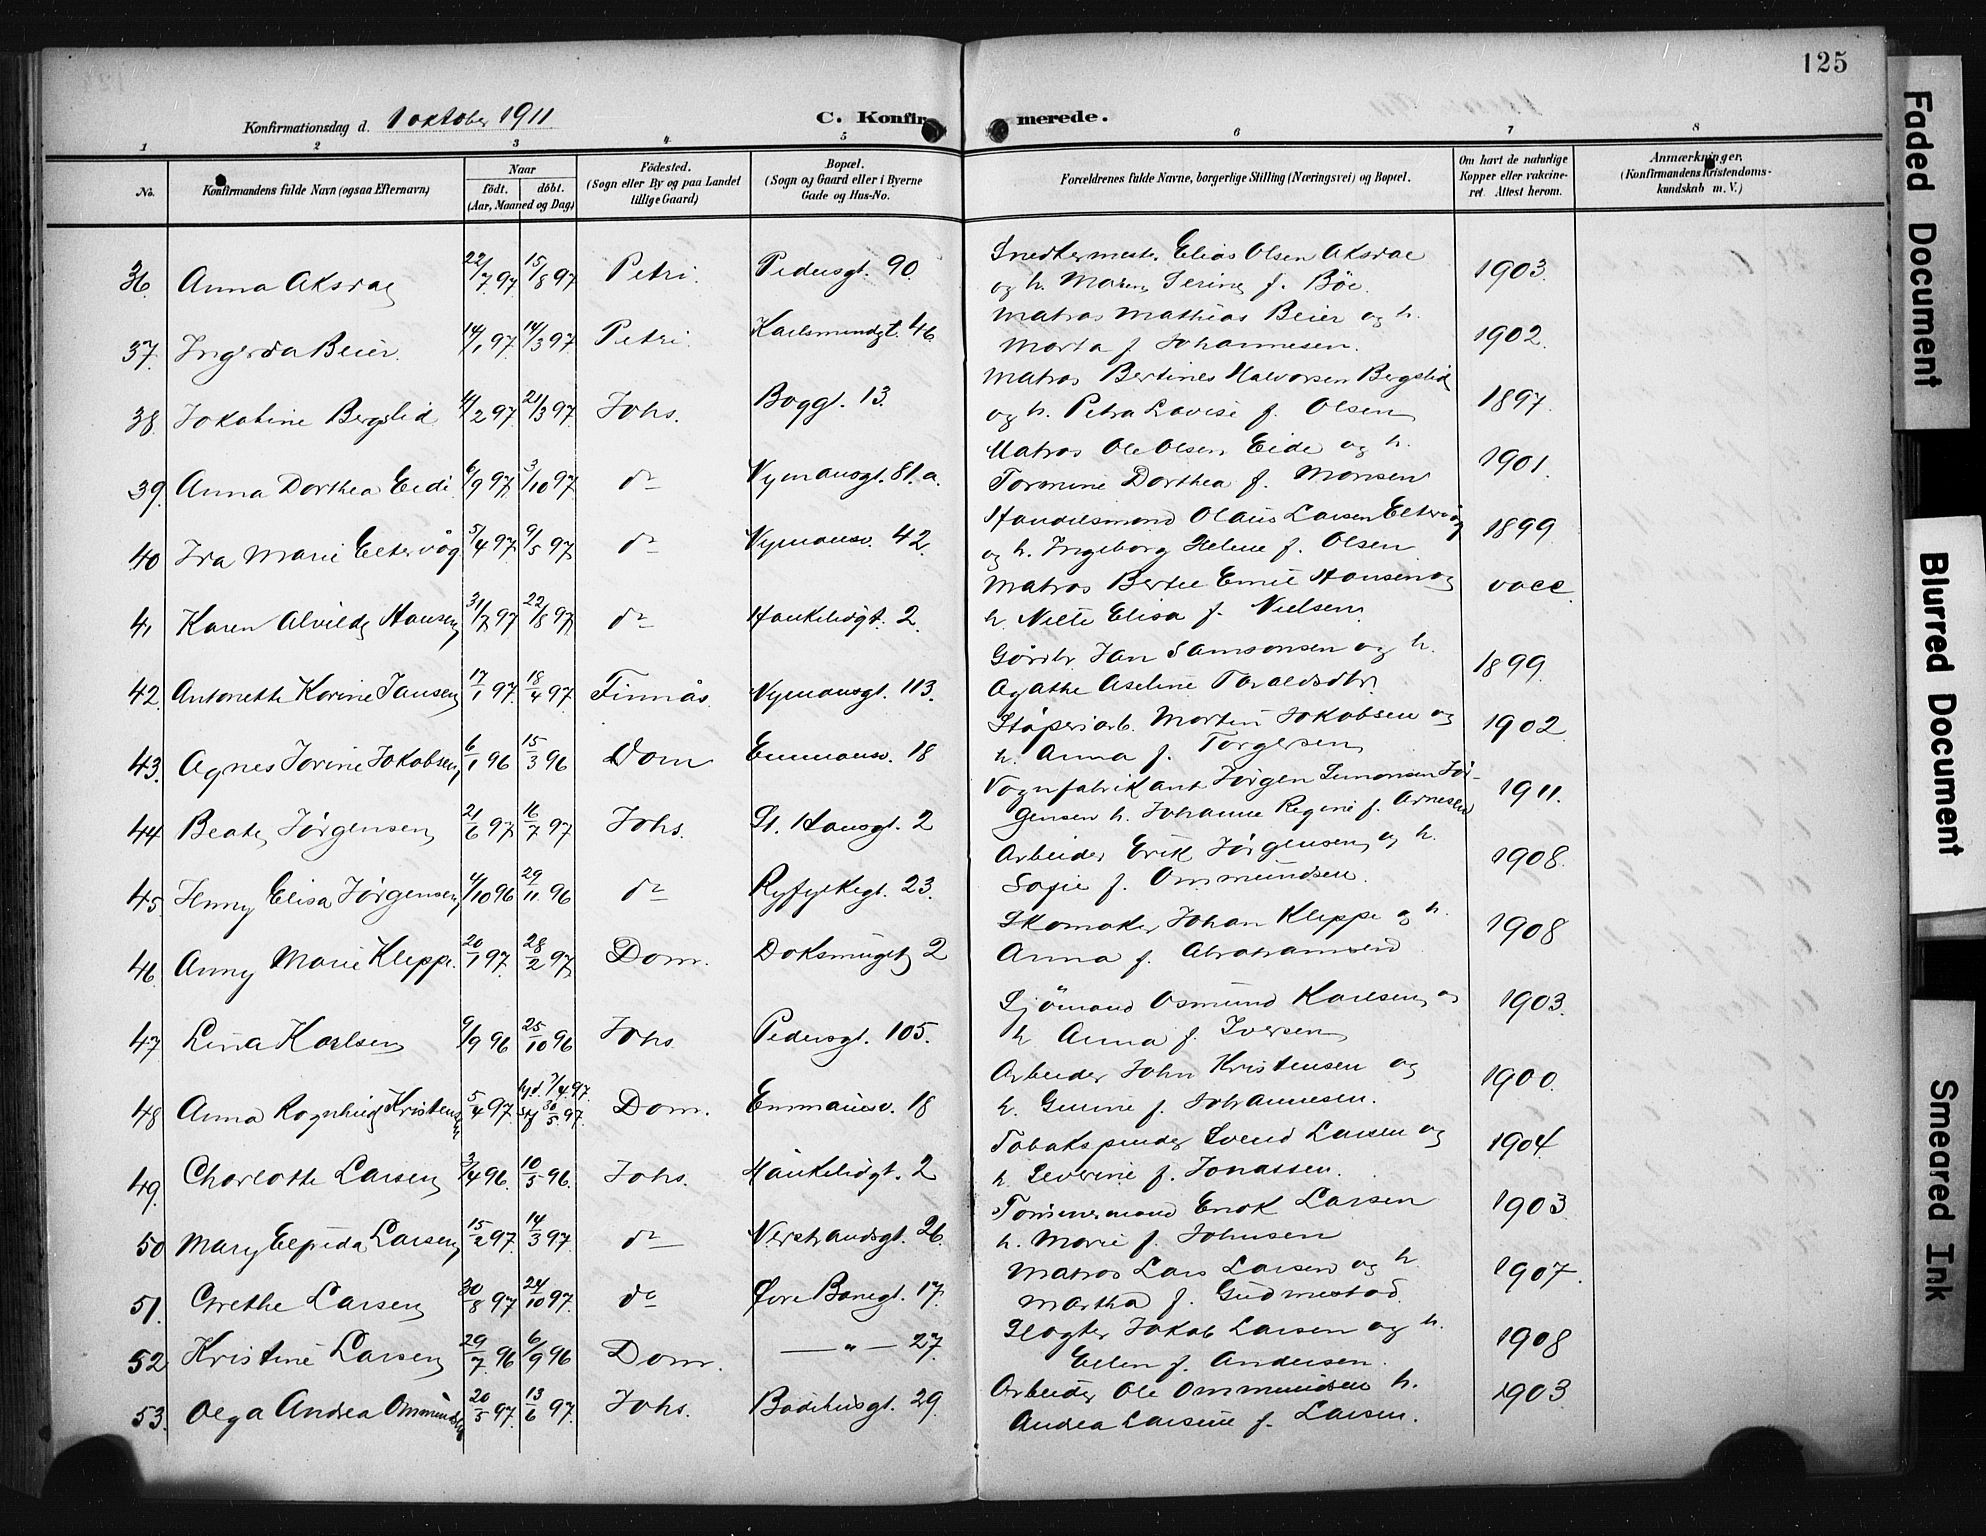 125
Konfirmationsdag d. 1 oktober 1911
C. Konfirmerede.
1 2 3 4 5 6 7 8
No.
Konfirmandens fulde Navn (ogsaa Efternavn)
Naar
født. døbt.
(Aar, Maaned og Dag)
Fødested.
(Sogn eller By og paa Landet
tillige Gaard)
Bopæl.
(Sogn og Gaard eller i Byerne
Gade og Hus-No.
Forældrenes fulde Navne, borgerlige Stilling (Næringsvei) og Bopæl.
Om havt de naturlige
Kopper eller vakcine-
ret. Attest herom.
Anmærkninger.
(Konfirmandens Kristendoms-
kundskab m. V.)
36. Anna Aksdal 22/7 97 15/8 97 Petri. Pedersgt. 90 Snedkermester Elias Olsen Aksdal
og h. Maren Serine f. Böe. 1903.
37. Ingerda Beier. 14/1 97. 14/3 97 Petri. Karlsmindegt. 46 Matros Mathias Beier og h.
Marta f. Johannesen. 1902.
38. Jokabine Bergslid 4/2 97 21/3 97 Johs. Boggt. 13. Matros Bertines Halvorsen Bergslid
og h. Petra Lovise f. Olsen 1897.
39. Anna Dorthea Eide 6/9 97 3/10 97 do Nymansgt. 81. a. Matros Ole Olsen Eide og h.
Tormine Dorthea f. Monsen 1901.
40 Ira Marie Eltervåg 5/4 97. 9/5 97 do Nymansv. 42. Handelsmand Olaus Larsen Eltervåg
og h. Ingeborg Helene f. Olsen 1899
41 Karen Alvilde Hansen 31/7 97 22/8 97 do Haukelidgt. 2. Matros Bertel Emil Hansen og
h. Nille Elisa f. Nielsen vacc.
42. Antonette Karine Jansen 17/1 97. 18/4 97. Finnås. Nymansgt. 113. Gårdbr. Jan Samsonsen og h.
Agathe Aseline Taraldsdtr. 1899.
43. Agnes Jorine Jakobsen 6/1 96 15/3 96 Dom Emmausv. 18 Støperiarb. Martin Jakobsen og
h. Anna f. Torgersen 1902
44 Beate Jørgensen 21/6 97 16/7 97 Johs. St. Hansgt. 2 Vognfabrikant Jørgen Simonsen Jør-
gensen h. Johanne Regine f. Arnesen 1911.
45 Jenny Elisa Jørgensen 4/10 96 29/11 96 do Ryfylkegt. 23. Arbeider Erik Jørgensen og h.
Sofie f. Ommundsen. 1908.
46 Anny Marie Kleppe. 20/1 97. 28/2 97 Dom. Doksmuget 2 Skomaker Johan Kleppe og h.
Anna f. Abrahamsen 1908
47 Lina Karlsen 9/9 96 25/10 96 Johs Pedersgt. 105. Sjömand Osmund Karlsen og
h Anna f. Iversen 1903.
48 Anna Ragnhild Kristensen 5/4 97. hjd. 7/4 97. stf 30/5 97. Dom. Emmausv. 18 Arbeider John Kristensen og
h. Gunne f. Johannesen. 1900.
49. Charlotte Larsen 3/4 96. 10/5 96. Johs. Haukelidgt. 2 Tobakspinder Svend Larsen og
h. Severine f. Jonassen. 1904
50 Mary Elpida Larsen 15/2 97. 14/3 97. do Nerstrandsgt. 26. Tömmermand Enok Larsen
h. Marie f. Johnsen 1903
51. Grethe Larsen 30/8 97 24/10 97. do Øvre Banegt. 17. Matros Lars Larsen og h.
Martha f. Gudmestad. 1907.
52 Kristine Larsen 29/7 96 6/9 96 Dom. — " — 27. Slagter Jakob Larsen og h.
Ellen f. Andersen. 1908
53. Olga Andrea Ommundsen 20/5 97. 13/6 97. Johs. Badehusgt. 29. Arbeider Ole Ommundsen h.
Andrea Larsine f. Larsen. 1903
Faded Document
Blurred Document
Smeared Ink